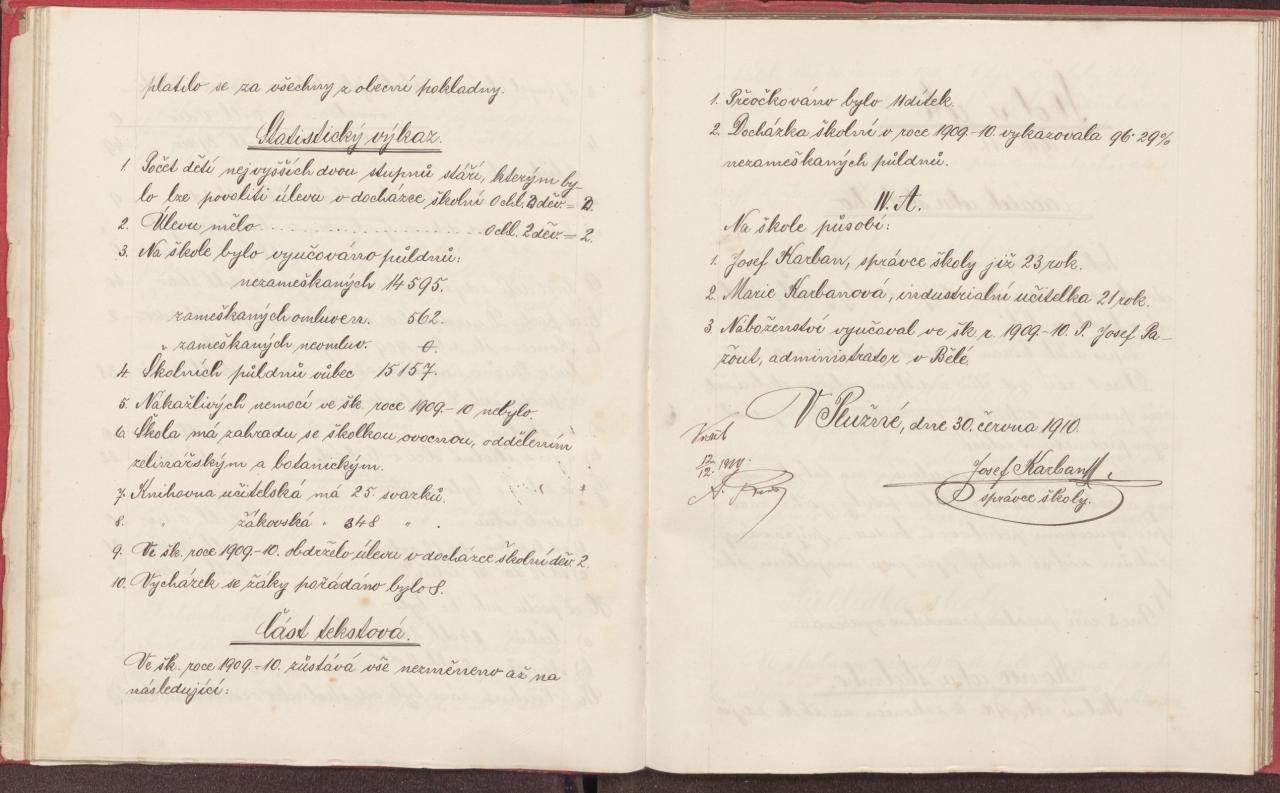 platilo se za všechny z obecní pokladny.
Statistický výkaz.
1. Počet dětí nejvyšších dvou stupnů stáří, kterým by-
lo lze povoliti úlevu v docházce školní 0 chl. 2 děv. = 2.
2. Úlevu mělo . . . . . . . . . . . . . . . . . . 0 chl. 2 děv. = 2.
3. Na škole bylo vyučováno půldnů:
nezameškaných 14595.
zameškaných omluven. 562.
zameškaných neomluv. 0.
4. Školních půldnů vůbec 15157.
5. Nakažlivých nemocí ve šk. roce 1909-10 nebylo.
6. Škola má zahradu se školkou ovocnou, oddělením
zelinářským a botanickým.
7. Knihovna učitelská má 25 svazků.
8. " žákovská " 348 " .
9. Ve šk. roce 1909-10. obdrželo úlevu v docházce školní děv. 2.
10. Vycházek se žáky pořádáno bylo 8.
Část tekstová.
Ve šk. roce 1909.-10. zůstává vše nezměneno až na
následující:
1. Přeočkováno bylo 11 dítek.
2. Docházka školní v roce 1909-10. vykazovala 96·29%
nezameškaných půldnů.
IV. A.
Na škole působí:
1. Josef Karban, správce školy již 23 rok.
2. Marie Karbanová, industrialní učitelka 21 rok.
3 Náboženství vyučoval ve šk. r. 1909.-10 P. Josef Pa-
žout, administrator v Bělé.
V Plužné, dne 30. června 1910.
Josef Karban
správce školy.